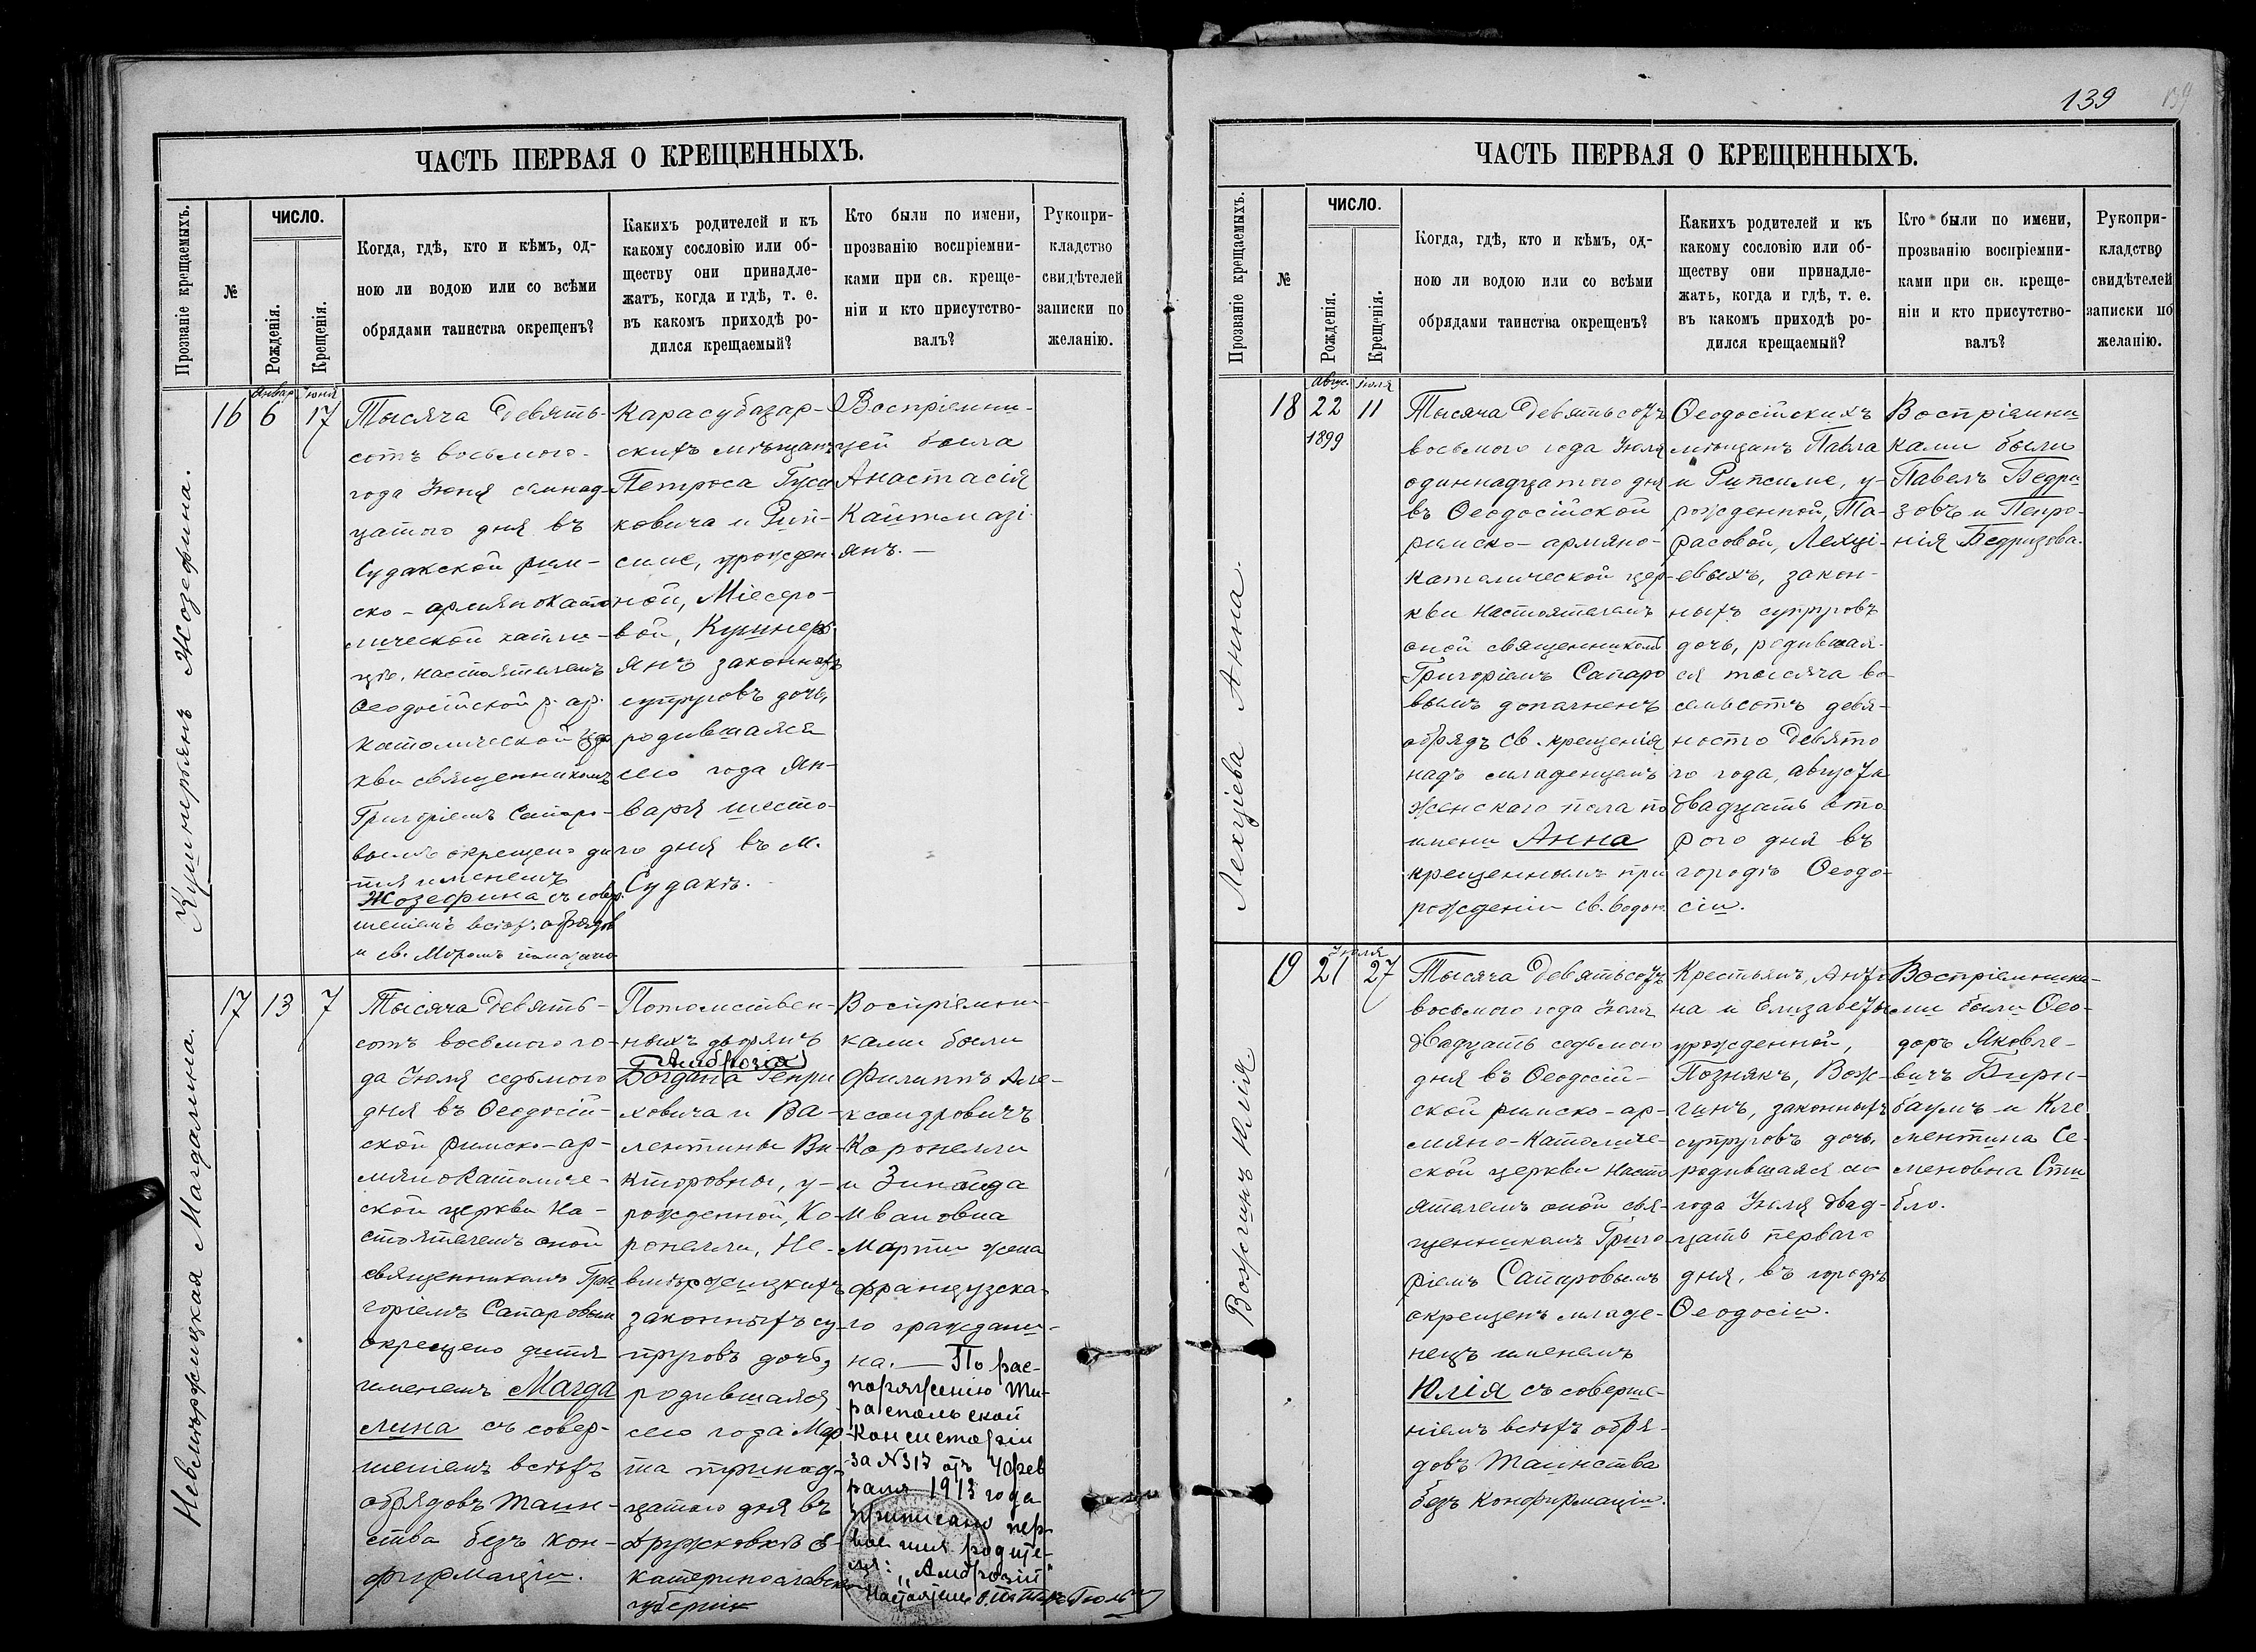 ЧАСТЬ ПЕРВАЯ О КРЕЩЕННЫХЪ.
Прозваніе крещаемыхъ.
№
ЧИСЛО.
Рожденія.
Крещенія.
Когда, гдѣ, кто и кѣмъ, од-
ною ли водою или со всѣми
обрядами таинства окрещенъ?
Какихъ родителей и къ
какому сословію или об-
ществу они принадле-
жатъ, когда и гдѣ, т. е.
въ какомъ приходѣ ро-
дился крещаемый?
Кто были по имени,
прозванію воспріемни-
ками при св. креще-
ніи и кто присутство-
валъ?
Рукопри-
кладство
свидѣтелей
записки по
желанію.
Кушнерьянъ Жозефина.
16
Январ
6
Іюня
17
Тысяча девять-
сотъ восьмого
года Іюня семнад-
цатого дня въ
Судакской рим-
ско-армянокато
лической капли-
цѣ, настоятелемъ
Ѳеодосійской р. ар.
католической цер
кви священникомъ
Григоріемъ Сапаро-
вымъ окрещено ди
тя именемъ
Жозефина съ совер-
шеніемъ всѣхъ обрядов
и св. Мѵромъ помазано
Карасубазар-
скихъ мѣщанъ
Петроса Гуси
ковича и Рип-
симе, урожден-
ной, Міесеро-
вой, Кушнерь-
янъ законныхъ
супруговъ дочь,
родившаяся
сего года Ян-
варя шесто-
го дня въ м.
Судакѣ.
Воспріемни-
цей была
Анастасія
Кайтмазі-
янъ.
Невмѣржицкая Магдалина.
17
13
7
Тысяча девять-
сотъ восьмого го-
да Іюля седьмого
дня въ Ѳеодосій-
ской римско-ар-
мянокатоличе-
ской церкви На-
стоятелемъ оной
священникомъ Гри
горіемъ Сапаровым
окрещено дитя
именемъ Магда
лина съ совер-
шеніемъ всѣхъ
обрядовъ таин-
ства безъ кон-
фирмаціи.
Потомствен-
ныхъ дворянъ
Амброзія
Богдана Генри
ховича и Ва-
лентины Ви-
кторовны, у-
рожденной, Ко-
ронелли, Не-
вмѣржицкихъ
законныхъ су-
пруговъ дочь,
родившаяся
сего года Мар-
та тринад-
цатого дня въ
Дружковкѣ Е-
катеринославской
губерніи
Воспріемни-
ками были
Филиппъ Але-
ксандровичъ
Коронелли
и Зинаида
Ивановна
Марти жена
французска-
го граждани-
на. — По рас-
поряженію Ти-
распольской
Консисторіи
за №313 отъ 4 фев
раля 1913 года
приписано пер-
вое имя родите-
ля: „Амброзій“
Настоятель
139
ЧАСТЬ ПЕРВАЯ О КРЕЩЕННЫХЪ.
Прозваніе крещаемыхъ.
№
ЧИСЛО.
Рожденія.
Крещенія.
Когда, гдѣ, кто и кѣмъ, од-
ною ли водою или со всѣми
обрядами таинства окрещенъ?
Какихъ родителей и къ
какому сословію или об-
ществу они принадле-
жатъ, когда и гдѣ, т. е.
въ какомъ приходѣ ро-
дился крещаемый?
Кто были по имени,
прозванію воспріемни-
ками при св. креще-
ніи и кто присутство-
валъ?
Рукопри-
кладство
свидѣтелей
записки по
желанію.
Лехціева Анна.
18
Авгус.
22
1899
Іюля
11
Тысяча девятьсотъ
восьмого года Іюля
одиннадцатого дня
въ Ѳеодосійской
римско-армяно-
католической цер-
кви настоятелемъ
оной священникомъ
Григоріемъ Сапаро
вымъ дополненъ
обрядъ св. крещенія
надъ младенцемъ
женскаго пола по
имени Анна
крещеннымъ при
рожденіи св. водою.
Ѳеодосійскихъ
мѣщанъ Павла
и Рипсиме, у-
рожденной, Та-
расовой, Лехці-
евыхъ, закон-
ныхъ супруговъ
дочь, родившая-
ся тысяча во-
семьсотъ девя-
носто девято
го года, августа
двадцать вто
рого дня въ
городѣ Ѳеодо-
сіи.
Воспріемни
ками были
Павелъ Бедри
зовъ и Петро-
нія Бедризова.
Вожгинъ Юлія
19
Іюля
21
27
Тысяча девятьсотъ
восьмого года Іюля
двадцать седьмого
дня въ Ѳеодосій-
ской римско-ар-
мяно-католиче-
ской церкви насто
ятелемъ оной свя-
щенникомъ Григо-
ріемъ Сапаровымъ
окрещенъ младе-
нецъ именемъ
Юлія съ соверше-
ніемъ всѣхъ обря-
довъ таинства
безъ конфирмаціи.
Крестьянъ, Анто
на и Елизаветы
урожденной,
Познякъ, Вож-
гинъ, законныхъ
супруговъ дочь,
родившаяся се
го года Іюля двад-
цать перваго
дня, въ городѣ
Ѳеодосіи.
Воспріемника-
ми были Ѳео-
доръ Яковле-
вичъ Бирн-
баумъ и Кле
ментина Се-
меновна Сти
бло.